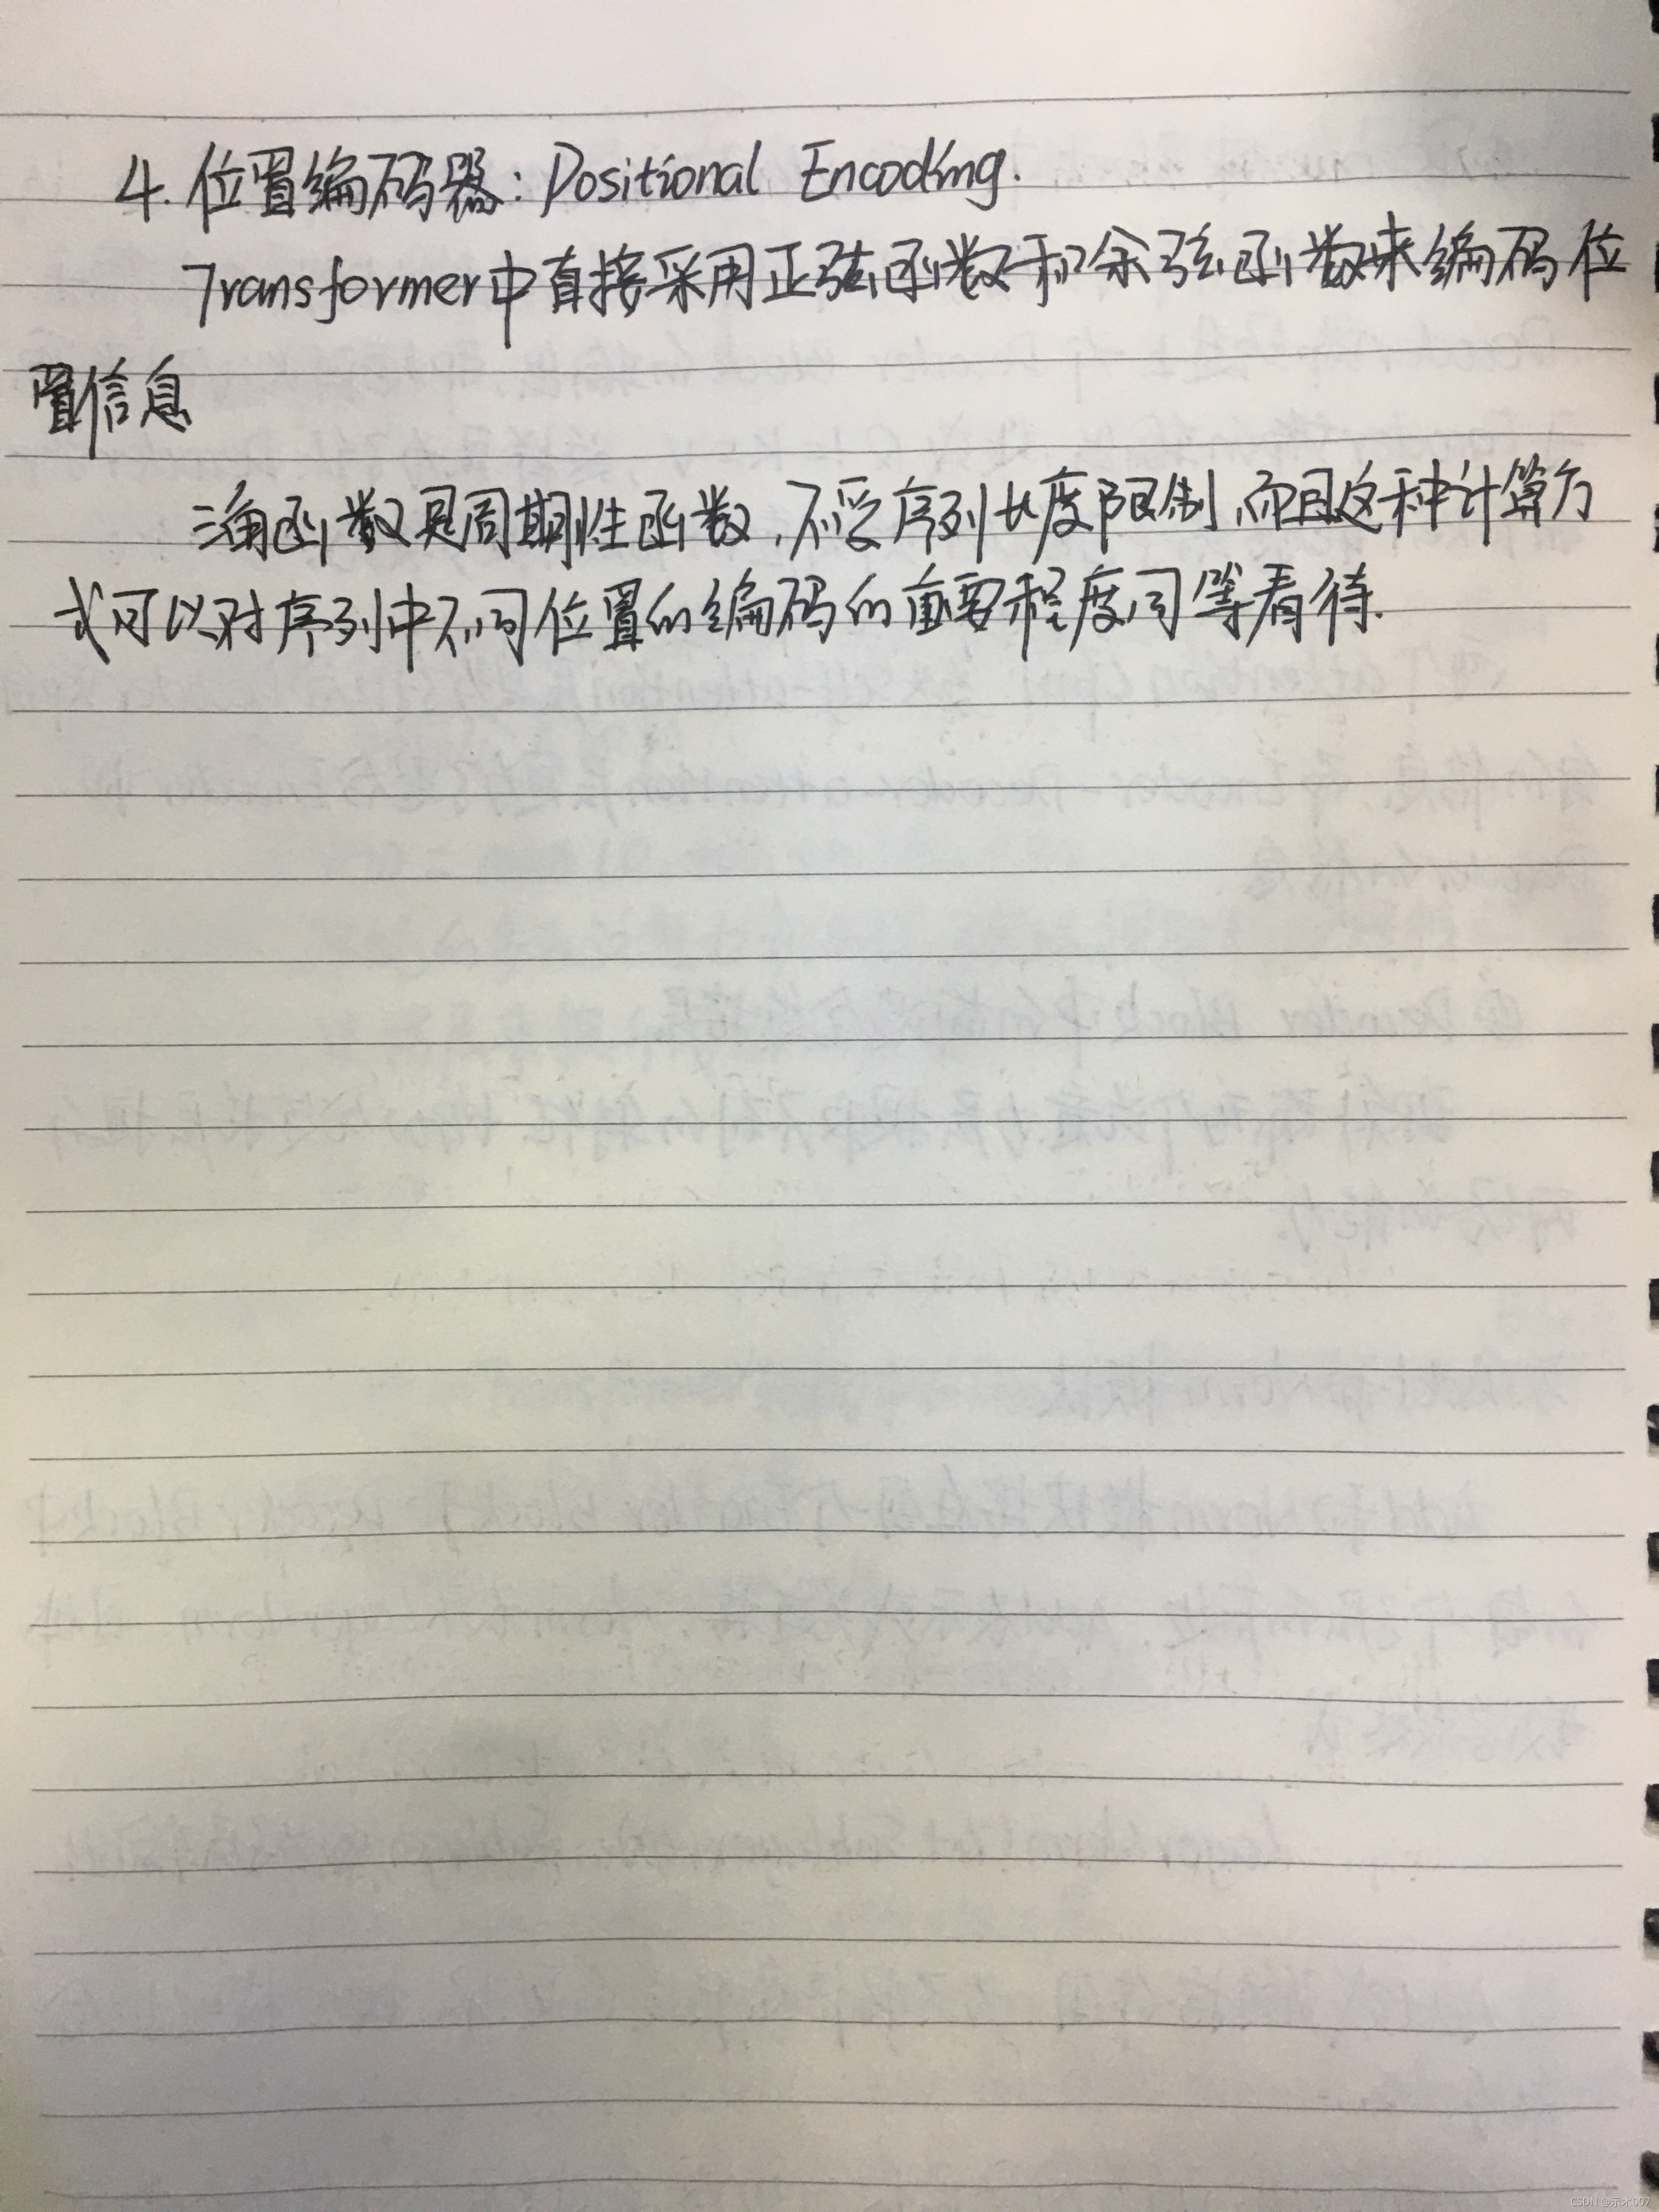 4. 位置编码器: Positional Encoding.
Transformer中直接采用正弦函数和余弦函数来编码位
置信息
三角函数是周期性函数,不受序列长度限制,而且这种计算方
式可以对序列中不同位置的编码的重要程度同等看待.
CSDN @示木007